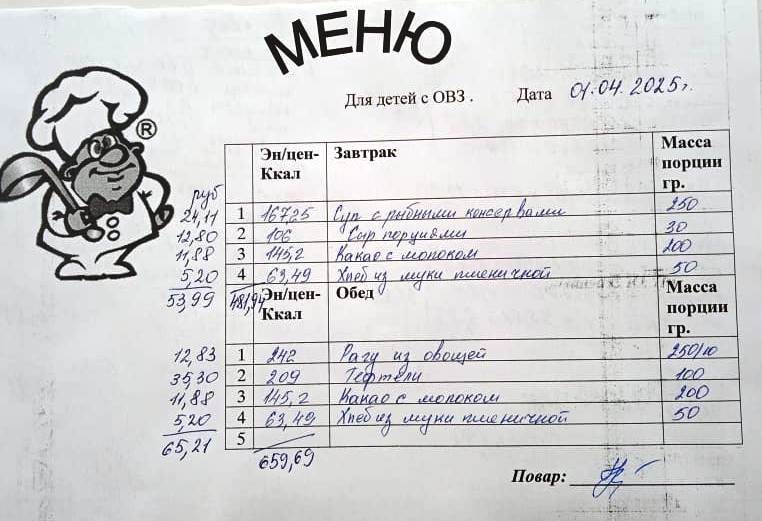 МЕНЮ
Для детей с ОВЗ . Дата 01.04.2025г.
®
Эн/цен-Ккал Завтрак Масса порции гр.
руб
24,11 1 167,25 Суп с рыбными консервами 250
12,80 2 106 Сыр порциями 30
11,88 3 145,2 Какао с молоком 200
5,20 4 63,49 Хлеб из муки пшеничной 50
53,99 481,94
Эн/цен-Ккал Обед Масса порции гр.
12,83 1 242 Рагу из овощей 250/10
35,30 2 209 Тефтели 100
11,88 3 145,2 Какао с молоком 200
5,20 4 63,49 Хлеб из муки пшеничной 50
65,21 5
659,69
Повар: